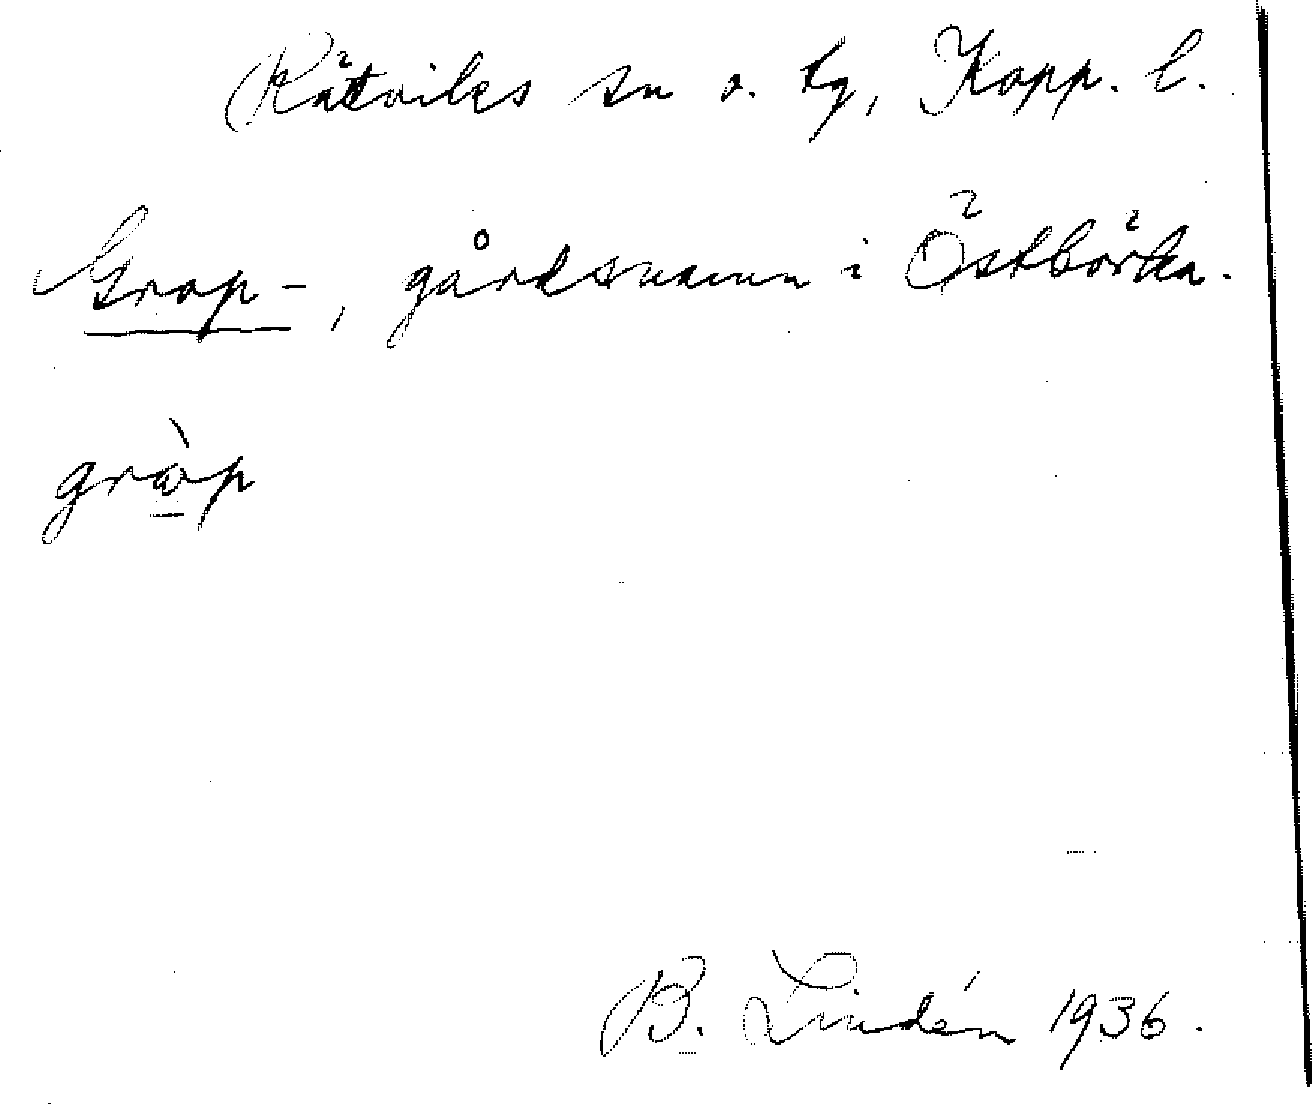 Rättviks sn o. tg, Kopp. l.
Grop-, gårdsnamn i Östbörka.
gròp
B. Lindén 1936.